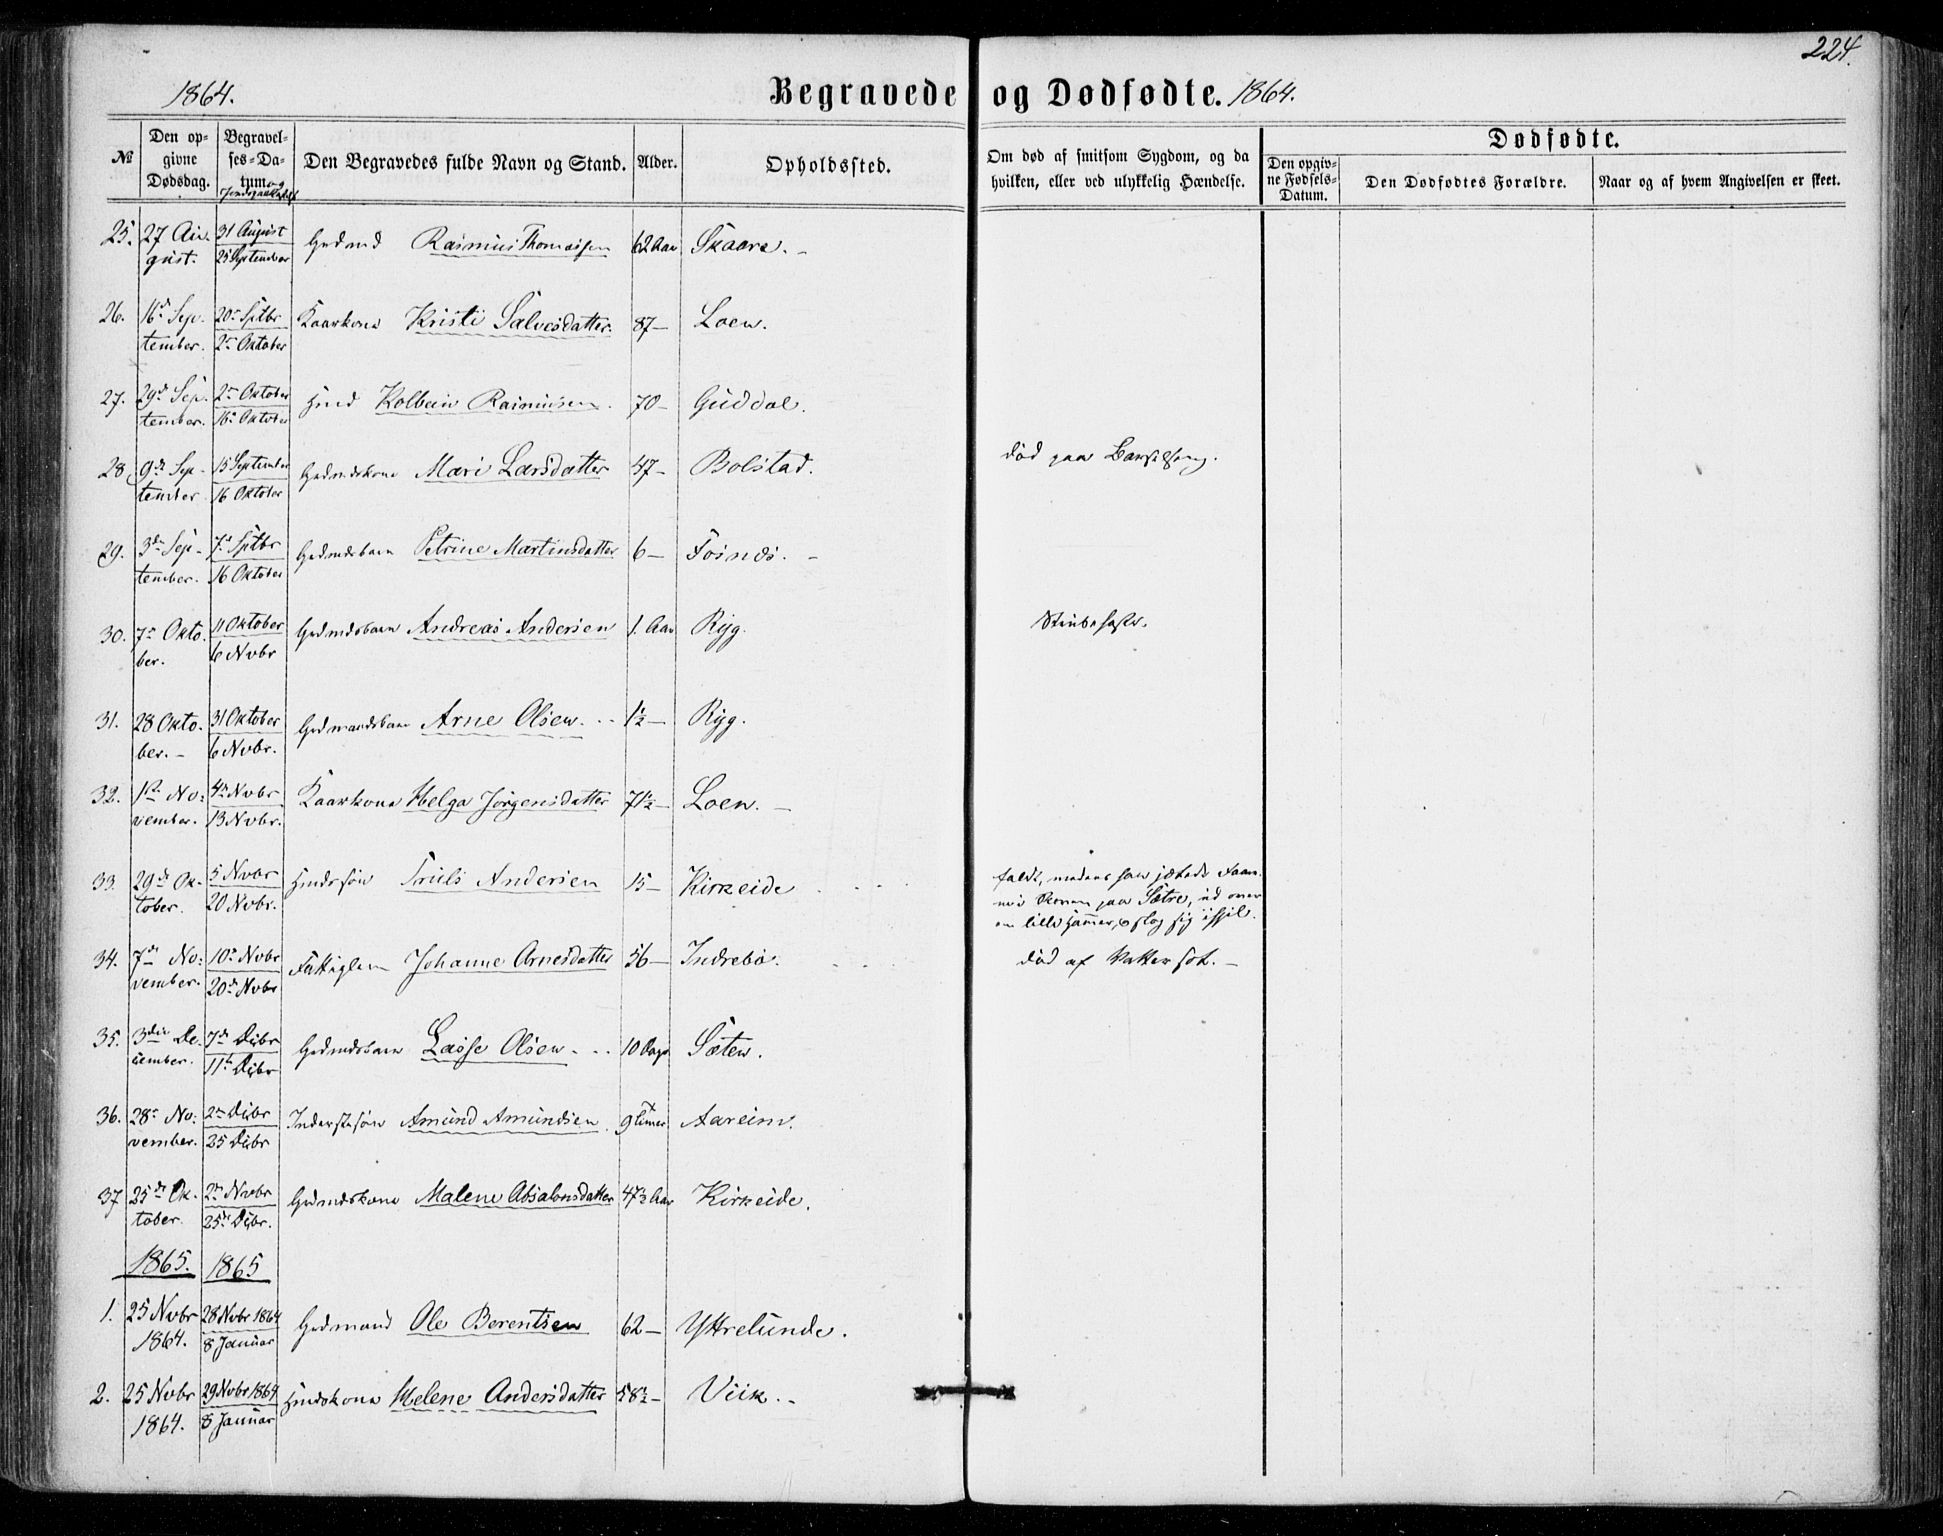 224.
1864. Begravede og Dødfødte. 1864.
№ Den opgivne Dødsdag. Begravelses-Datum og Jordpaakastelse Den Begravedes fulde Navn og Stand. Alder. Opholdssted. Om død af smitsom Sygdom, og da hvilken, eller ved ulykkelig Hændelse. Dødfødte. Den opgivne Fødsels-Datum. Den Dødfødtes Forældre. Naar og af hvem Angivelsen er skeet.
25. 27 August. 31 August 25 September Grdmd Rasmus Thomassen 62 Aar Skaare. -
26. 16d September. 20de Sptbr 2den Oktober Kaarkone Kristi Salvesdatter. 87 - Loen.
27. 29d September. 2den Oktober 16de Oktober Hmd Kolbein Rasmusen. 70 - Guddal.
28 9de September 15 September 16 Oktober Grdmdskone Mari Larsdatter 47 - Bolstad. død paa Barselseng.
29. 3die September. 7de Sptbr 16 Oktober Grdmdsbarn Petrine Martinsdatter 6 - Fosnæs. -
30. 7de Oktober. 11 Oktober 6 Nvbr Grdmdsbarn Andreas Andersen 1. Aar Ryg. Strubehoste.
31. 28 Oktober. - 31 Oktober 6 Nvbr. Grdmandsbarn Arne Olsen. 1½ - Ryg.
32. 1ste November. 4de Nvbr 13 Nvbr. Kaarkone Helga Jørgensdatter 71½ - Loen. -
33. 29de Oktober. 5 Nvbr 20 Nvbr. Hmdssøn Truls Andersen 15 - Kirkeide faldt, medens han jætede Faarene i Skoven paa Sætre, ud over en lille Hammer, & slog sig ihjel.
34. 7de November. 10de Nvbr 20de Nvbr Fattiglem Johanne Arnesdatter 56 - Indrebø. død af Vattersot. -
35. 3die December. 7de Dcbr 11te Dcbr Grdmdsbarn Lasse Olsen. 10 Dage Sæten.
36. 28de November. 2den Dcbr 25 Dcbr Inderstesøn Amund Amundsen. 9 timer Aareim.
37 25de Oktober. 2den Nvbr 25de Dcbr. Grdmdskone Malene Absalonsdatter 47½ Aar Kirkeide.
1865. 1865
1. 25 Nvbr 1864. 28 Nvbr 1864 8 Januar Grdmand Ole Berentsen 62 - Yttrelunde.
2. 25 Nvbr 1864. 29 Nvbr 1864 8 Januar Hmdskone Helene Andersdatter 58½ - Viik. -